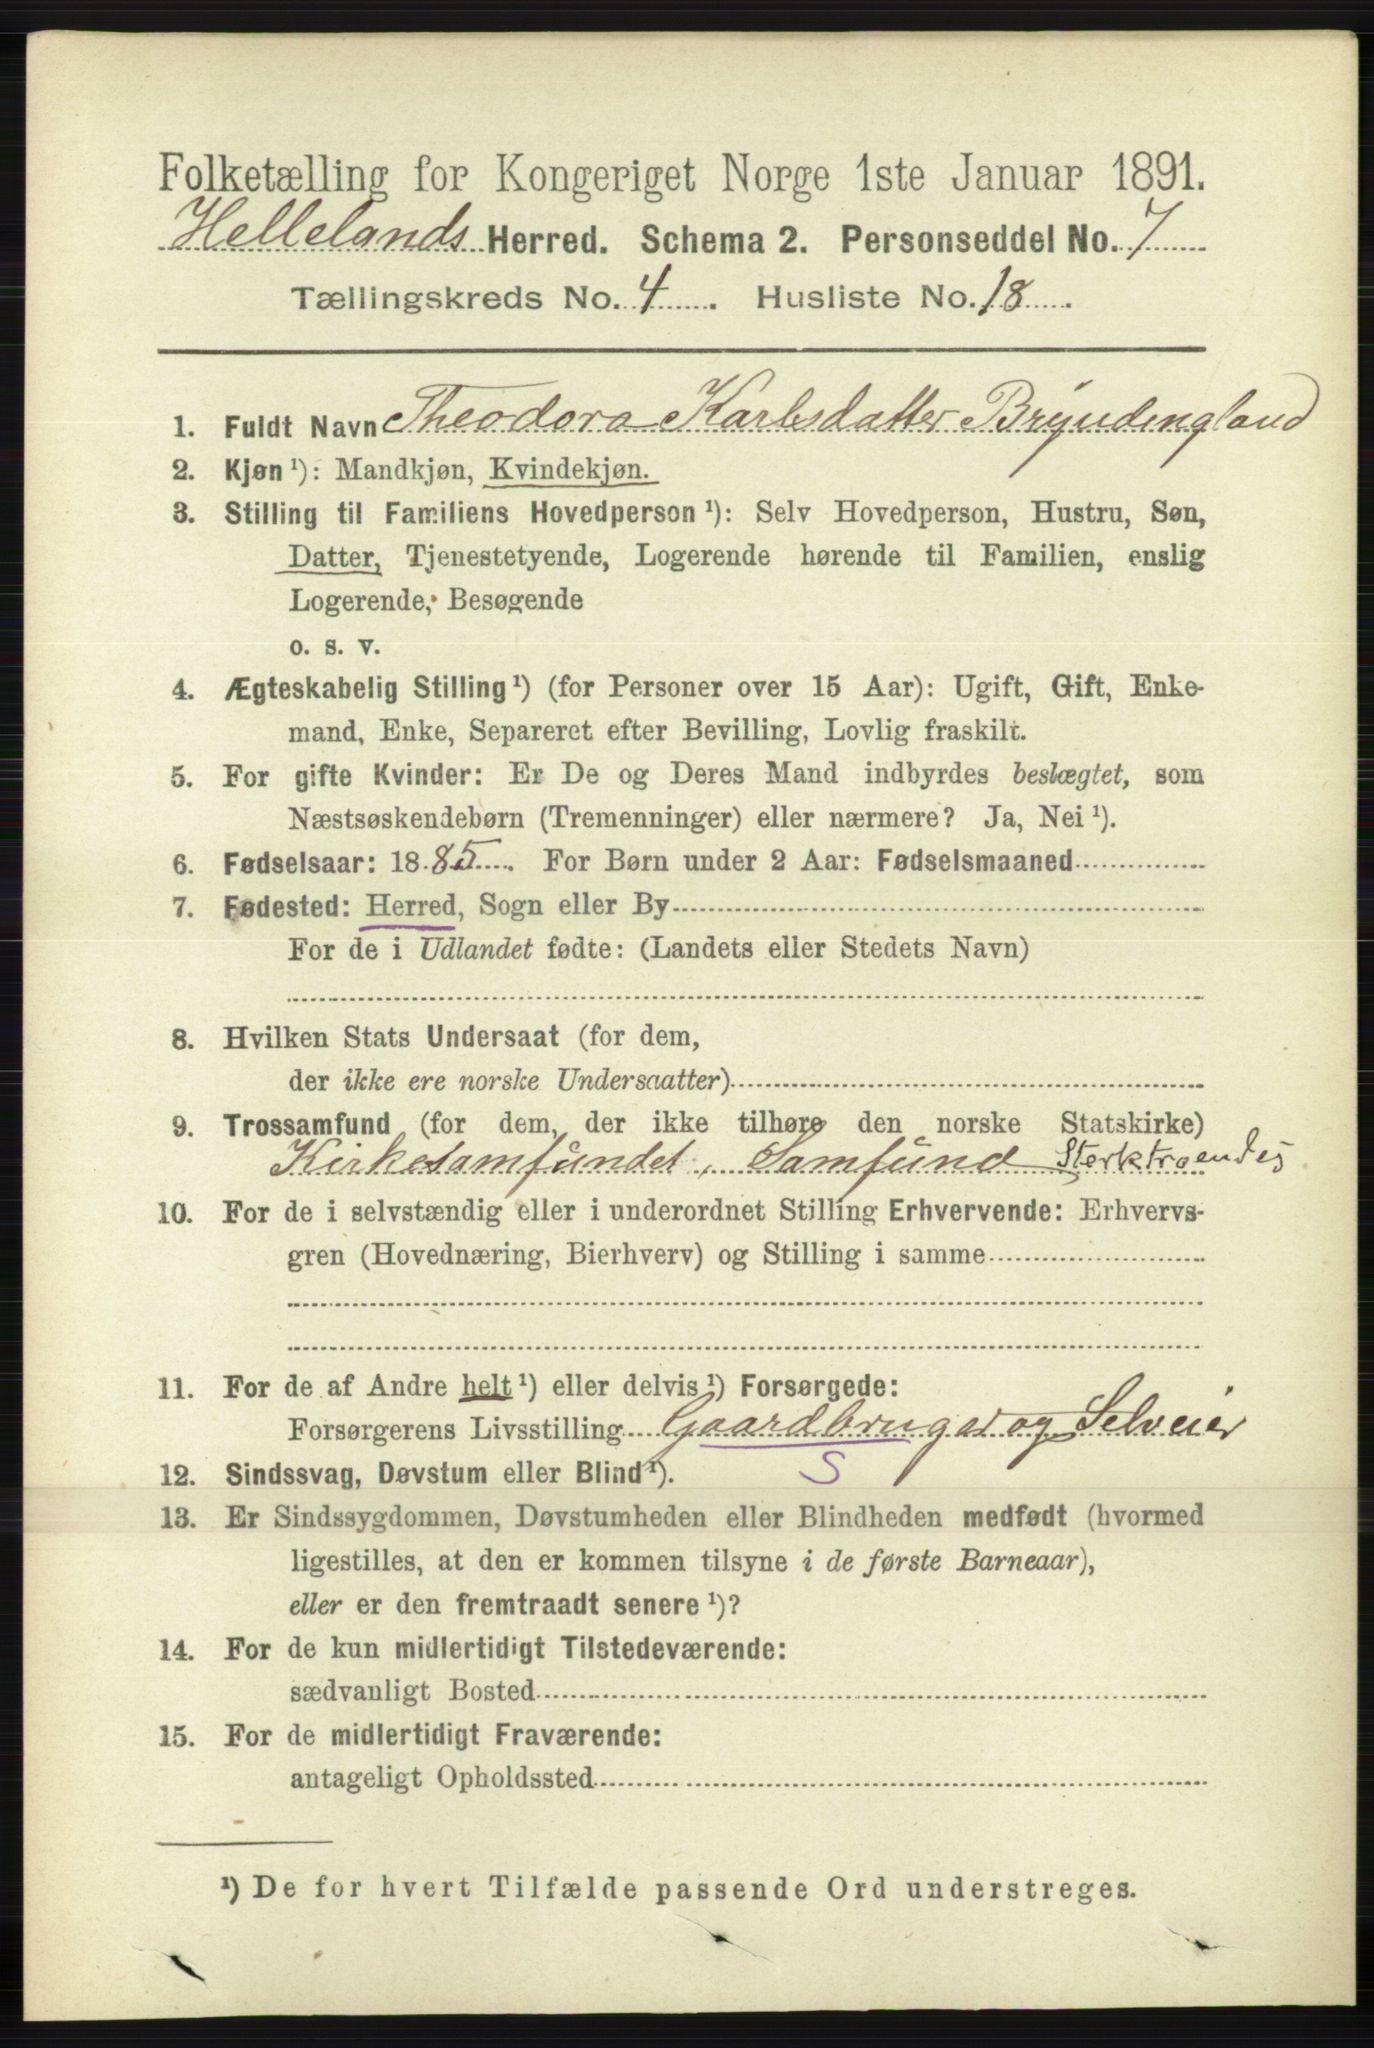 Folketælling for Kongeriget Norge 1ste Januar 1891.
Hellelands Herred. Schema 2. Personseddel No. 7
Tællingskreds No. 4. Husliste No. 18.
1. Fuldt Navn Theodora Karlsdatter Bryndingland
2. Kjøn¹): Mandkjøn, Kvindekjøn.
3. Stilling til Familiens Hovedperson¹): Selv Hovedperson, Hustru, Søn,
Datter, Tjenestetyende, Logerende hørende til Familien, enslig
Logerende, Besøgende
o. s. v.
4. Ægteskabelig Stilling¹) (for Personer over 15 Aar): Ugift, Gift, Enke-
mand, Enke, Separeret efter Bevilling, Lovlig fraskilt.
5. For gifte Kvinder: Er De og Deres Mand indbyrdes beslægtet, som
Næstsøskendebørn (Tremenninger) eller nærmere? Ja, Nei¹).
6. Fødselsaar: 1885. For Børn under 2 Aar: Fødselsmaaned
7. Fødested: Herred, Sogn eller By
For de i Udlandet fødte: (Landets eller Stedets Navn)
8. Hvilken Stats Undersaat (for dem,
der ikke ere norske Undersaatter)
9. Trossamfund (for dem, der ikke tilhøre den norske Statskirke)
Kirkesamfundet, Samfund Sterktroendes
10. For de i selvstændig eller i underordnet Stilling Erhvervende: Erhvervs-
gren (Hovednæring, Bierhverv) og Stilling i samme
11. For de af Andre helt¹) eller delvis¹) Forsørgede:
Forsørgerens Livsstilling Gaardbruger og Selveier
12. Sindssvag, Døvstum eller Blind¹). S
13. Er Sindssygdommen, Døvstumheden eller Blindheden medfødt (hvormed
ligestilles, at den er kommen tilsyne i de første Barneaar),
eller er den fremtraadt senere¹)?
14. For de kun midlertidigt Tilstedeværende:
sædvanligt Bosted
15. For de midlertidigt Fraværende:
antageligt Opholdssted
¹) De for hvert Tilfælde passende Ord understreges.